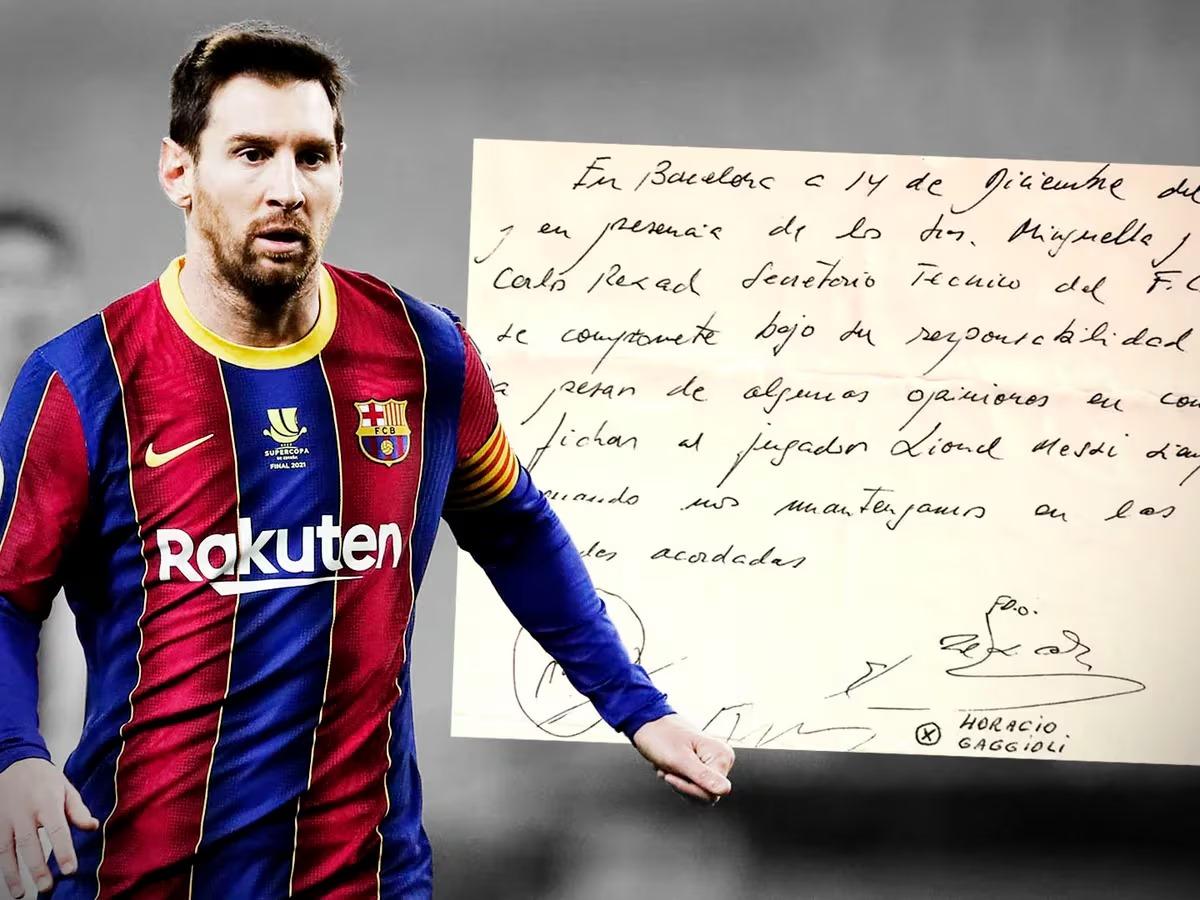 En Barcelona a 14 de Diciembre del
y en presencia de los Sres. Minguella y
Carlos Rexad Secretorio Tecnico del F.C
se compromete bajo su responsabilidad
a pesar de algunas opiniones en con
fichar al jugador Lionel Messi siem
cuando nos mantengamos en las
des acordadas
FCB
SUPERCOPA
DE ESPAÑA
FINAL 2021
Rakuten
FDO.
HORACIO
GAGGIOLI